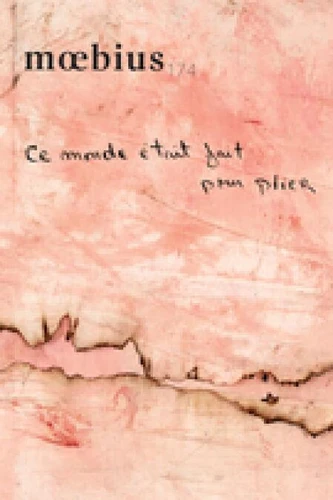 mœbius
174
Ce monde était fait
pour plier